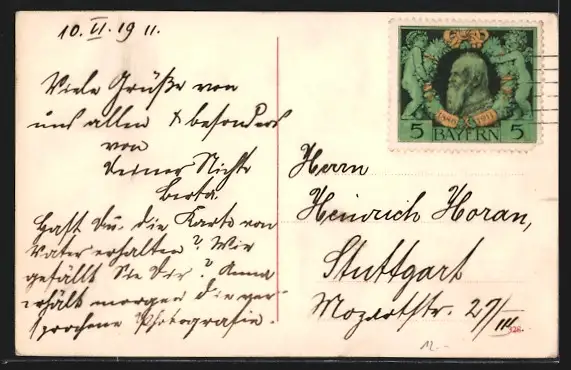 10. VI. 19 11.
Viele Grüße von
uns allen & besonders
von
Deiner Nichte
Berta.
Hast Du die Karte von
Vater erhalten? Wie
gefällt Sie Dir? Anna
erhält morgen die ver-
sprochene Photografie.
1886 1911
5 BAYERN 5
Herrn
Heinrich Horan,
Stuttgart
Mozartstr. 27/III
12.-